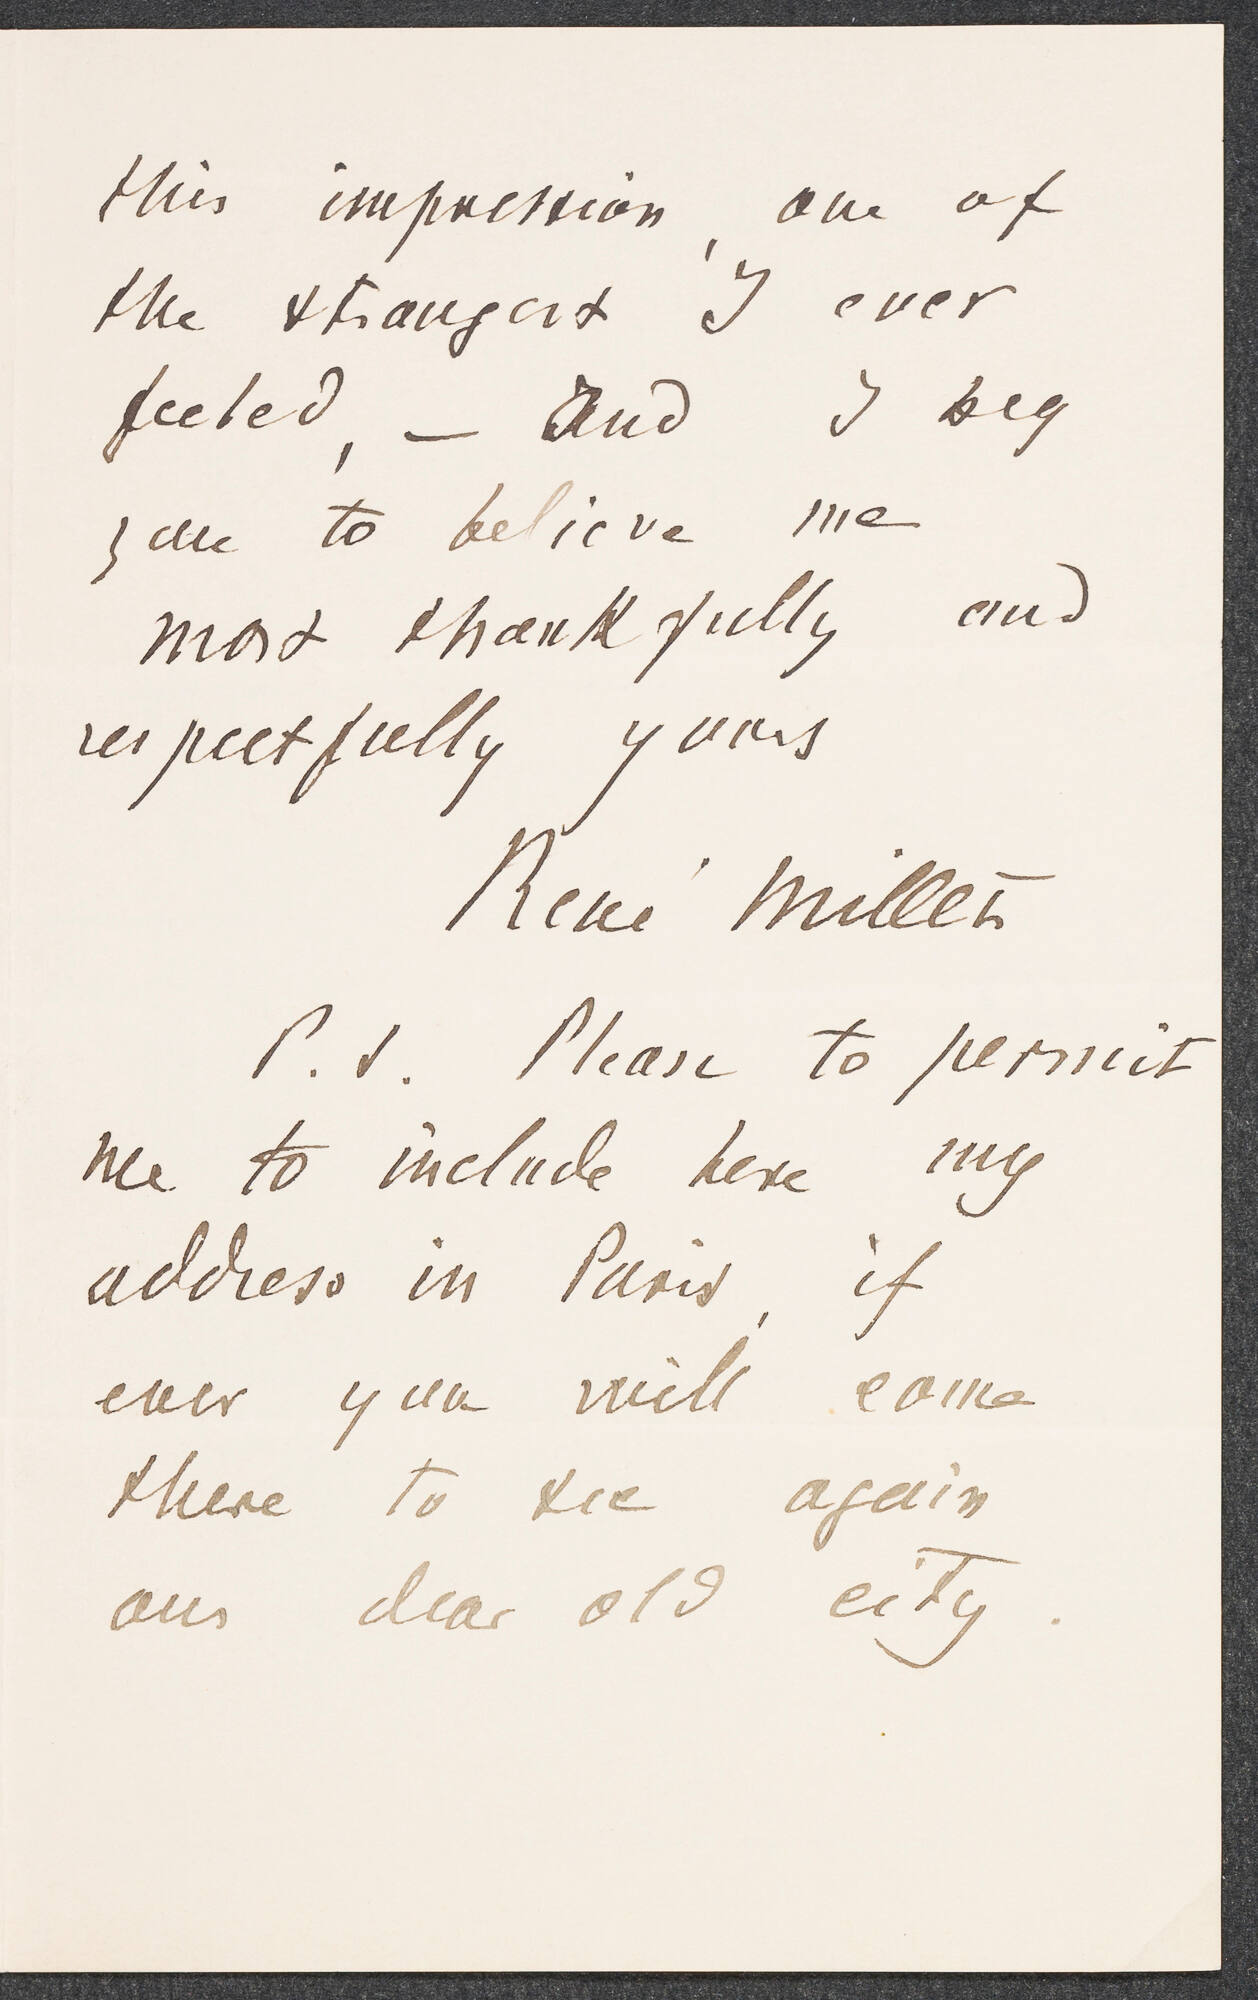 this impression, one of
the strangest I ever
feeled, — and I beg
you to believe me
most thankfully and
respectfully yours
René Millet
P.S. Please to permit
me to include here my
address in Paris, if
ever you will come
there to see again
our dear old city.